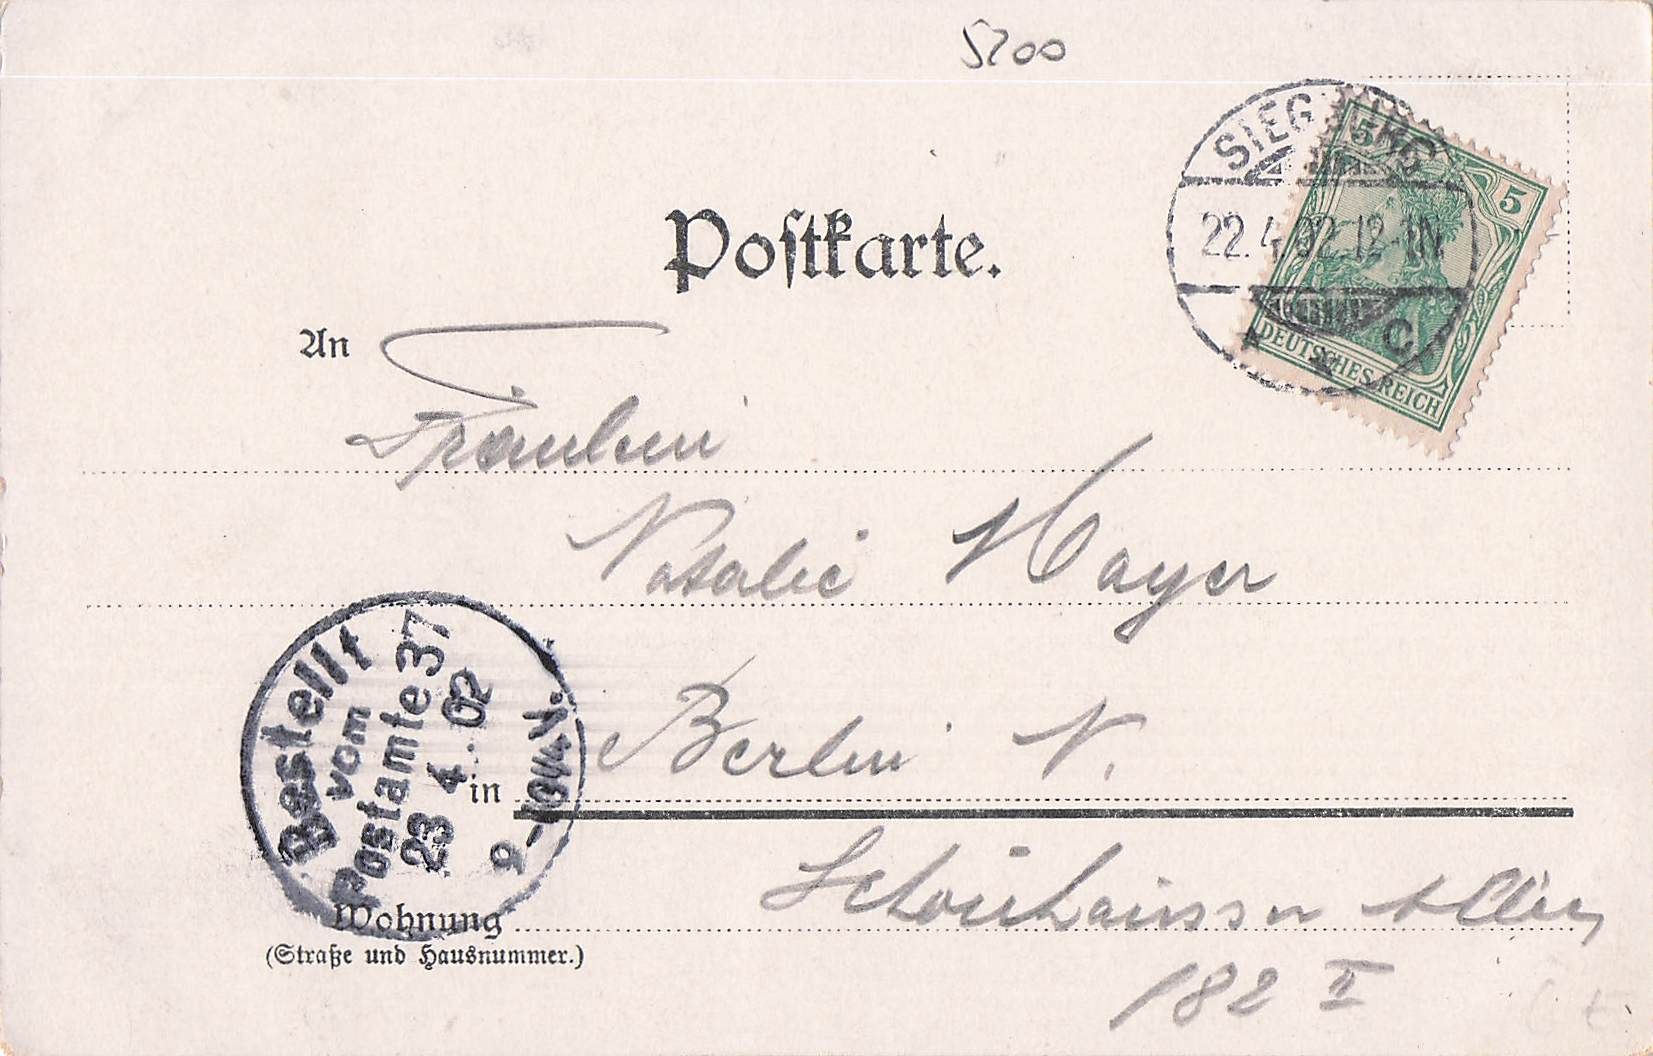 5200
Postkarte.
SIEGBURG
22.4.02.12-1N
* * C
5 5
DEUTSCHES REICH
An
Fräulein
Natalie Mayer
in Berlin N.
Bestellt
vom
Postamte 37
23 4.02
9-10¼V.
Wohnung Schönhausser Allee,
(Straße und Hausnummer.)
182 II